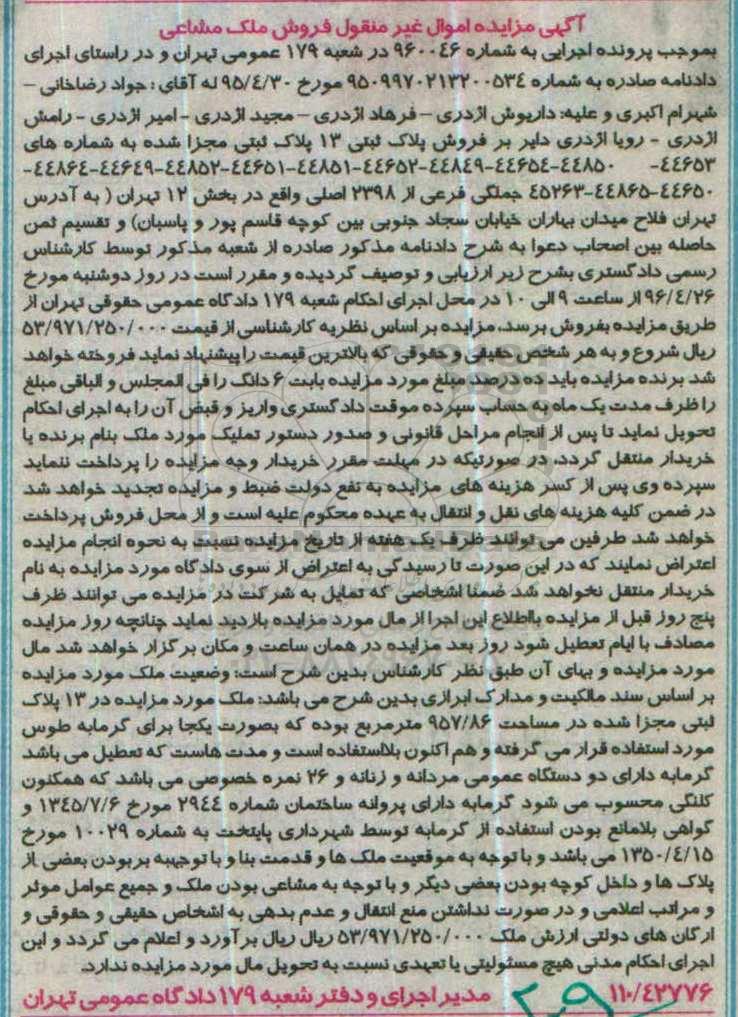 آگهی مزایده اموال غیر منقول فروش ملک مشاعی
بموجب پرونده اجرایی به شماره ۹۶۰۰۴۶ در شعبه ۱۷۹ عمومی تهران و در راستای اجرای
دادنامه صادره به شماره ۹۵۰۹۹۷۰۲۱۳۲۰۰۵۳۴ مورخ ۹۵/۴/۳۰ له آقای: جواد رضاخانی –
شهرام اکبری و علیه: داریوش اژدری – فرهاد اژدری – مجید اژدری - امیر اژدری - رامش
اژدری - رویا اژدری دایر بر فروش پلاک ثبتی ۱۳ پلاک ثبتی مجزا شده به شماره های
۴۴۶۵۳- ۴۴۸۵۰-۴۴۶۵۴-۴۴۸۴۹-۴۴۶۵۲-۴۴۸۵۱-۴۴۶۵۱-۴۴۸۵۲-۴۴۶۴۹-۴۴۸۶۴-
۴۴۶۵۰-۴۴۸۶۵-۴۵۲۶۳ جملگی فرعی از ۲۳۹۸ اصلی واقع در بخش ۱۲ تهران ( به آدرس
تهران فلاح میدان بهاران خیابان سجاد جنوبی بین کوچه قاسم پور و پاسبان) و تقسیم ثمن
حاصله بین اصحاب دعوا به شرح دادنامه مذکور صادره از شعبه مذکور توسط کارشناس
رسمی دادگستری بشرح زیر ارزیابی و توصیف گردیده و مقرر است در روز دوشنبه مورخ
۹۶/۴/۲۶ از ساعت ۹ الی ۱۰ در محل اجرای احکام شعبه ۱۷۹ دادگاه عمومی حقوقی تهران از
طریق مزایده بفروش برسد، مزایده بر اساس نظریه کارشناسی از قیمت ۵۳/۹۷۱/۲۵۰/۰۰۰
ریال شروع و به هر شخص حقیقی و حقوقی که بالاترین قیمت را پیشنهاد نماید فروخته خواهد
شد برنده مزایده باید ده درصد مبلغ مورد مزایده بابت ۶ دانگ را فی المجلس و الباقی مبلغ
را ظرف مدت یک ماه به حساب سپرده موقت دادگستری واریز و قبض آن را به اجرای احکام
تحویل نماید تا پس از انجام مراحل قانونی و صدور دستور تملیک مورد ملک بنام برنده یا
خریدار منتقل گردد، در صورتیکه در مهلت مقرر خریدار وجه مزایده را پرداخت ننماید
سپرده وی پس از کسر هزینه های مزایده به نفع دولت ضبط و مزایده تجدید خواهد شد
در ضمن کلیه هزینه های نقل و انتقال به عهده محکوم علیه است و از محل فروش پرداخت
خواهد شد طرفین می توانند ظرف یک هفته از تاریخ مزایده نسبت به نحوه انجام مزایده
اعتراض نمایند که در این صورت تا رسیدگی به اعتراض از سوی دادگاه مورد مزایده به نام
خریدار منتقل نخواهد شد ضمنا اشخاصی که تمایل به شرکت در مزایده می توانند ظرف
پنج روز قبل از مزایده بااطلاع این اجرا از مال مورد مزایده بازدید نماید چنانچه روز مزایده
مصادف با ایام تعطیل شود روز بعد مزایده در همان ساعت و مکان برگزار خواهد شد مال
مورد مزایده و بهای آن طبق نظر کارشناس بدین شرح است: وضعیت ملک مورد مزایده
بر اساس سند مالکیت و مدارک ابرازی بدین شرح می باشد: ملک مورد مزایده در ۱۳ پلاک
ثبتی مجزا شده در مساحت ۹۵۷/۸۶ مترمربع بوده که بصورت یکجا برای گرمابه طوس
مورد استفاده قرار می گرفته و هم اکنون بلااستفاده است و مدت هاست که تعطیل می باشد
گرمابه دارای دو دستگاه عمومی مردانه و زنانه و ۲۶ نمره خصوصی می باشد که همکنون
کلنگی محسوب می شود گرمابه دارای پروانه ساختمان شماره ۲۹۴۴ مورخ ۱۳۴۵/۷/۶ و
گواهی بلامانع بودن استفاده از گرمابه توسط شهرداری پایتخت به شماره ۱۰۰۲۹ مورخ
۱۳۵۰/۴/۱۵ می باشد و با توجه به موقعیت ملک ها و قدمت بنا و با توجیبه بربودن بعضی از
پلاک ها و داخل کوچه بودن بعضی دیگر و با توجه به مشاعی بودن ملک و جمیع عوامل موثر
و مراتب اعلامی و در صورت نداشتن منع انتقال و عدم بدهی به اشخاص حقیقی و حقوقی و
ارگان های دولتی ارزش ملک ۵۳/۹۷۱/۲۵۰/۰۰۰ ریال ریال برآورد و اعلام می گردد و این
اجرای احکام مدنی هیچ مسئولیتی یا تعهدی نسبت به تحویل مال مورد مزایده ندارد.
۱۱۰/۴۲۷۷۶ مدیر اجرای و دفتر شعبه ۱۷۹ دادگاه عمومی تهران